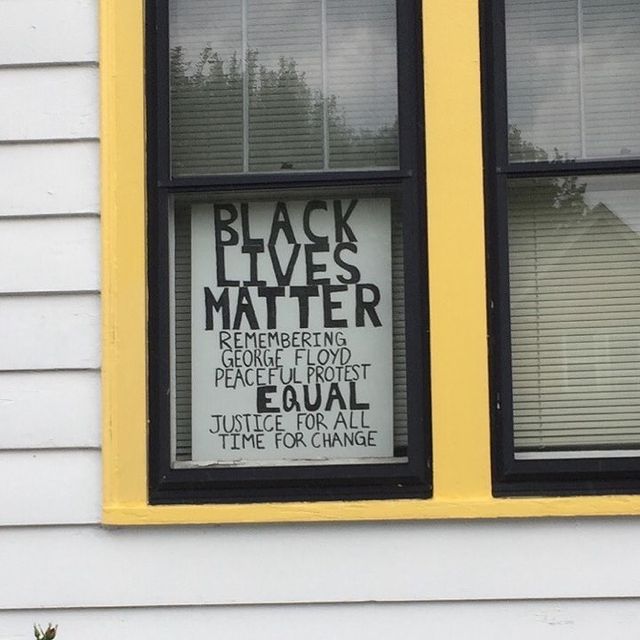 BLACK
LIVES
MATTER
REMEMBERING
GEORGE FLOYD
PEACEFUL PROTEST
EQUAL
JUSTICE FOR ALL
TIME FOR CHANGE